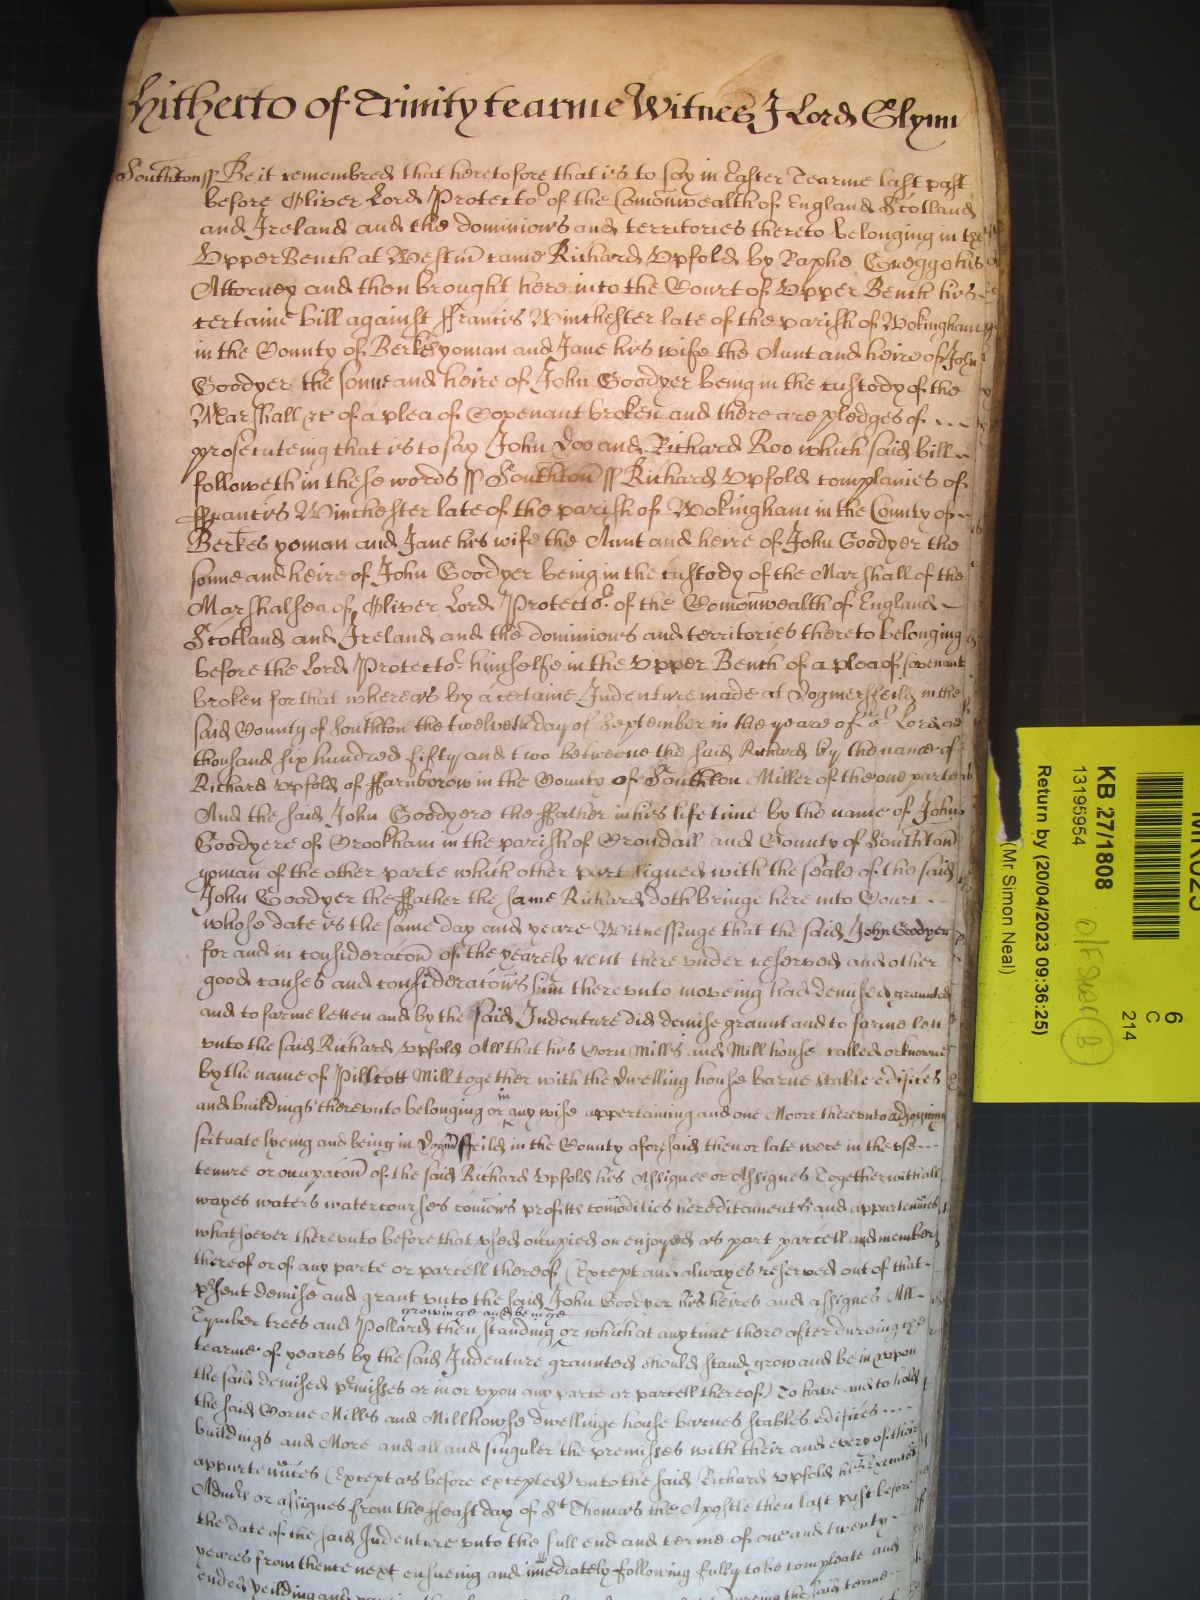 Hitherto of Trinity tearme Witnes J Lord Glynn
Southton ss Be it remembred that heretofore that is to say in Easter Tearme last past
before Oliver Lord Protector of the Comonwealth of England Scotland
and Ireland and the dominions and territories thereto belonging in the
Upper Bench at Westm came Richard Upfold by Raphe Gregge his
Attorney and then brought here into the Court of Upper Bench his
certaine bill against ffrancis Winchester late of the parish of Wokingham
in the County of Berkes yoman and Jane his wife the Aunt and heire of John
Goodyer the sonne and heire of John Goodyer being in the custody of the
Marshall &c of a plea of Covenant broken and there are pledges of
prosecuteing that is to say John Doo and Richard Roo which said bill
followeth in these words ss Southton ss Richard Upfold complaines of
ffrancis Winchester late of the parish of Wokingham in the County of
Berkes yoman and Jane his wife the Aunt and heire of John Goodyer the
sonne and heire of John Goodyer being in the custody of the Marshall of the
Marshalsea of Oliver Lord Protector of the Comonwealth of England
Scotland and Ireland and the dominions and territories thereto belonging
before the Lord Protector himselfe in the Upper Bench of a plea of covenant
broken for that whereas by a certaine Indenture made at Dogmersfeild in the
said County of Southton the twelveth day of September in the yeare of or Lord one
thousand six hundred fifty and two betweene the said Richard by the name of
Richard Upfold of ffarnborow in the County of Southton Miller of the one parte
And the said John Goodyere the ffather in his life time by the name of John
Goodyere of Crookham in the parish of Crondall and County of Southton
yoman of the other parte which other part signed with the seale of the said
John Goodyer the ffather the same Richard doth bringe here into Court
whose date is the same day and yeare Witnessinge that the said John Goodyer
for and in consideracon of the yearely rent there under reserved and other
good causes and consideracons him thereunto moveing had demised graunted
and to farme letten and by the said Indenture did demise graunt and to farme lett
unto the said Richard Upfold All that his Corn Mills and Mill house called or knowne
by the name of Pillcott Mill together with the dwelling house barne stable edifices
and buildings thereunto belonging or in any wise appertaining and one Moore thereunto adjoyning
scituate lyeing and being in Dogmsfeild in the County aforesaid then or late were in the use
tenure or occupacon of the said Richard Upfold his Assignee or Assignes Together with all
wayes waters watercourses comons profitts comodities hereditements and appurtennces
whatsoever thereunto before that used occupied or enjoyed as part parcell and member
thereof or of any parte or parcell thereof (Except and alwayes reserved out of that
psent demise and grant unto the said John Goodyer his heires and assignes All
Tymber trees and Pollards then standing growinge and beinge or which at any time there after dureing the
tearme of yeares by the said Indenture graunted should stand grow and be in upon
the said demised pmisses or in or upon any parte or parcell thereof) To have and to hold
the said Corne Mills and Millhowse dwellinge house barnes stables edifices
buildings and More and all and singuler the premisses with their and every of their
appurtennces (Except as before excepted) unto the said Richard Upfold his Executors
Admrs or assignes from the ffeast day of St Thomas the Apostle then last past before
the date of the said Indenture unto the full end and terme of one and twenty
yeares from thence next ensueing and imediately following fully to be compleate and
ended yeilding and
6
C
214
KB 27/1808
13195954
Return by (20/04/2023 09:36:25)
(Mr Simon Neal)